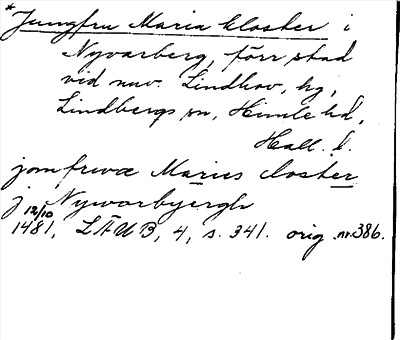 *Jungfru Maria kloster i
Nyvarberg, förr stad
vid nuv. Lindhov, hg,
Lindbergs sn, Himle hd,
Hall. l.
jomfrwæ Maries closter
j Nyworbyergh
12/10
1481, LÄUB, 4, s. 341. orig. nr.386.